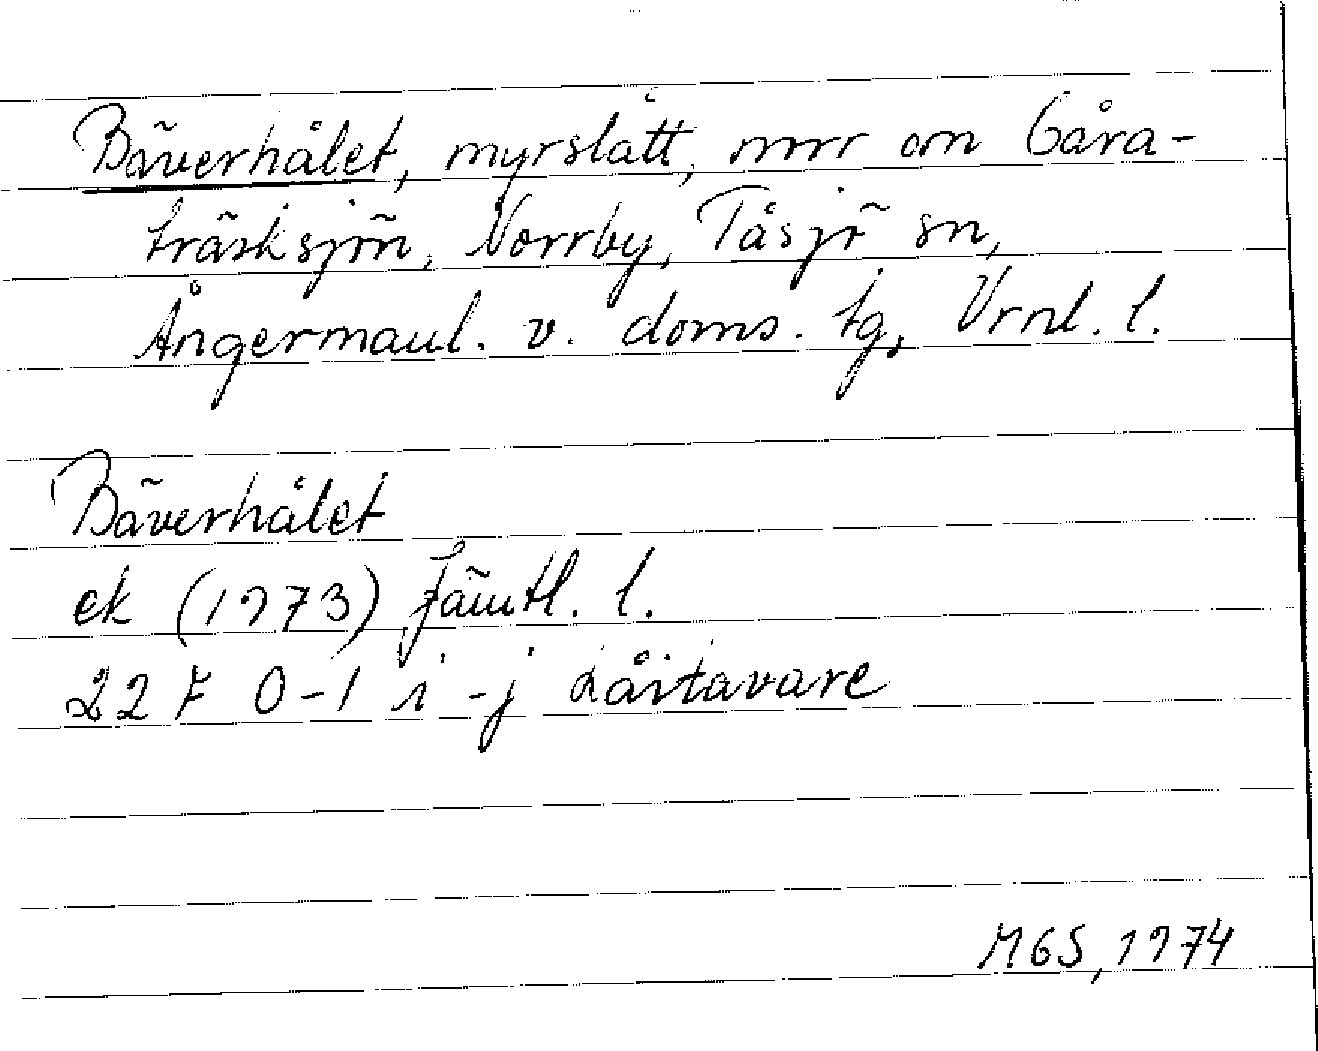 Bäverhålet, myrslått, nnr om Gåra-
träsksjön, Norrby, Tåsjö sn,
Ångermanl. v. doms. tg, Vrnl. l.
Bäverhålet
ek (1973) Jämtl. l.
22 F 0-1 i-j Låitavare
MGS, 1974